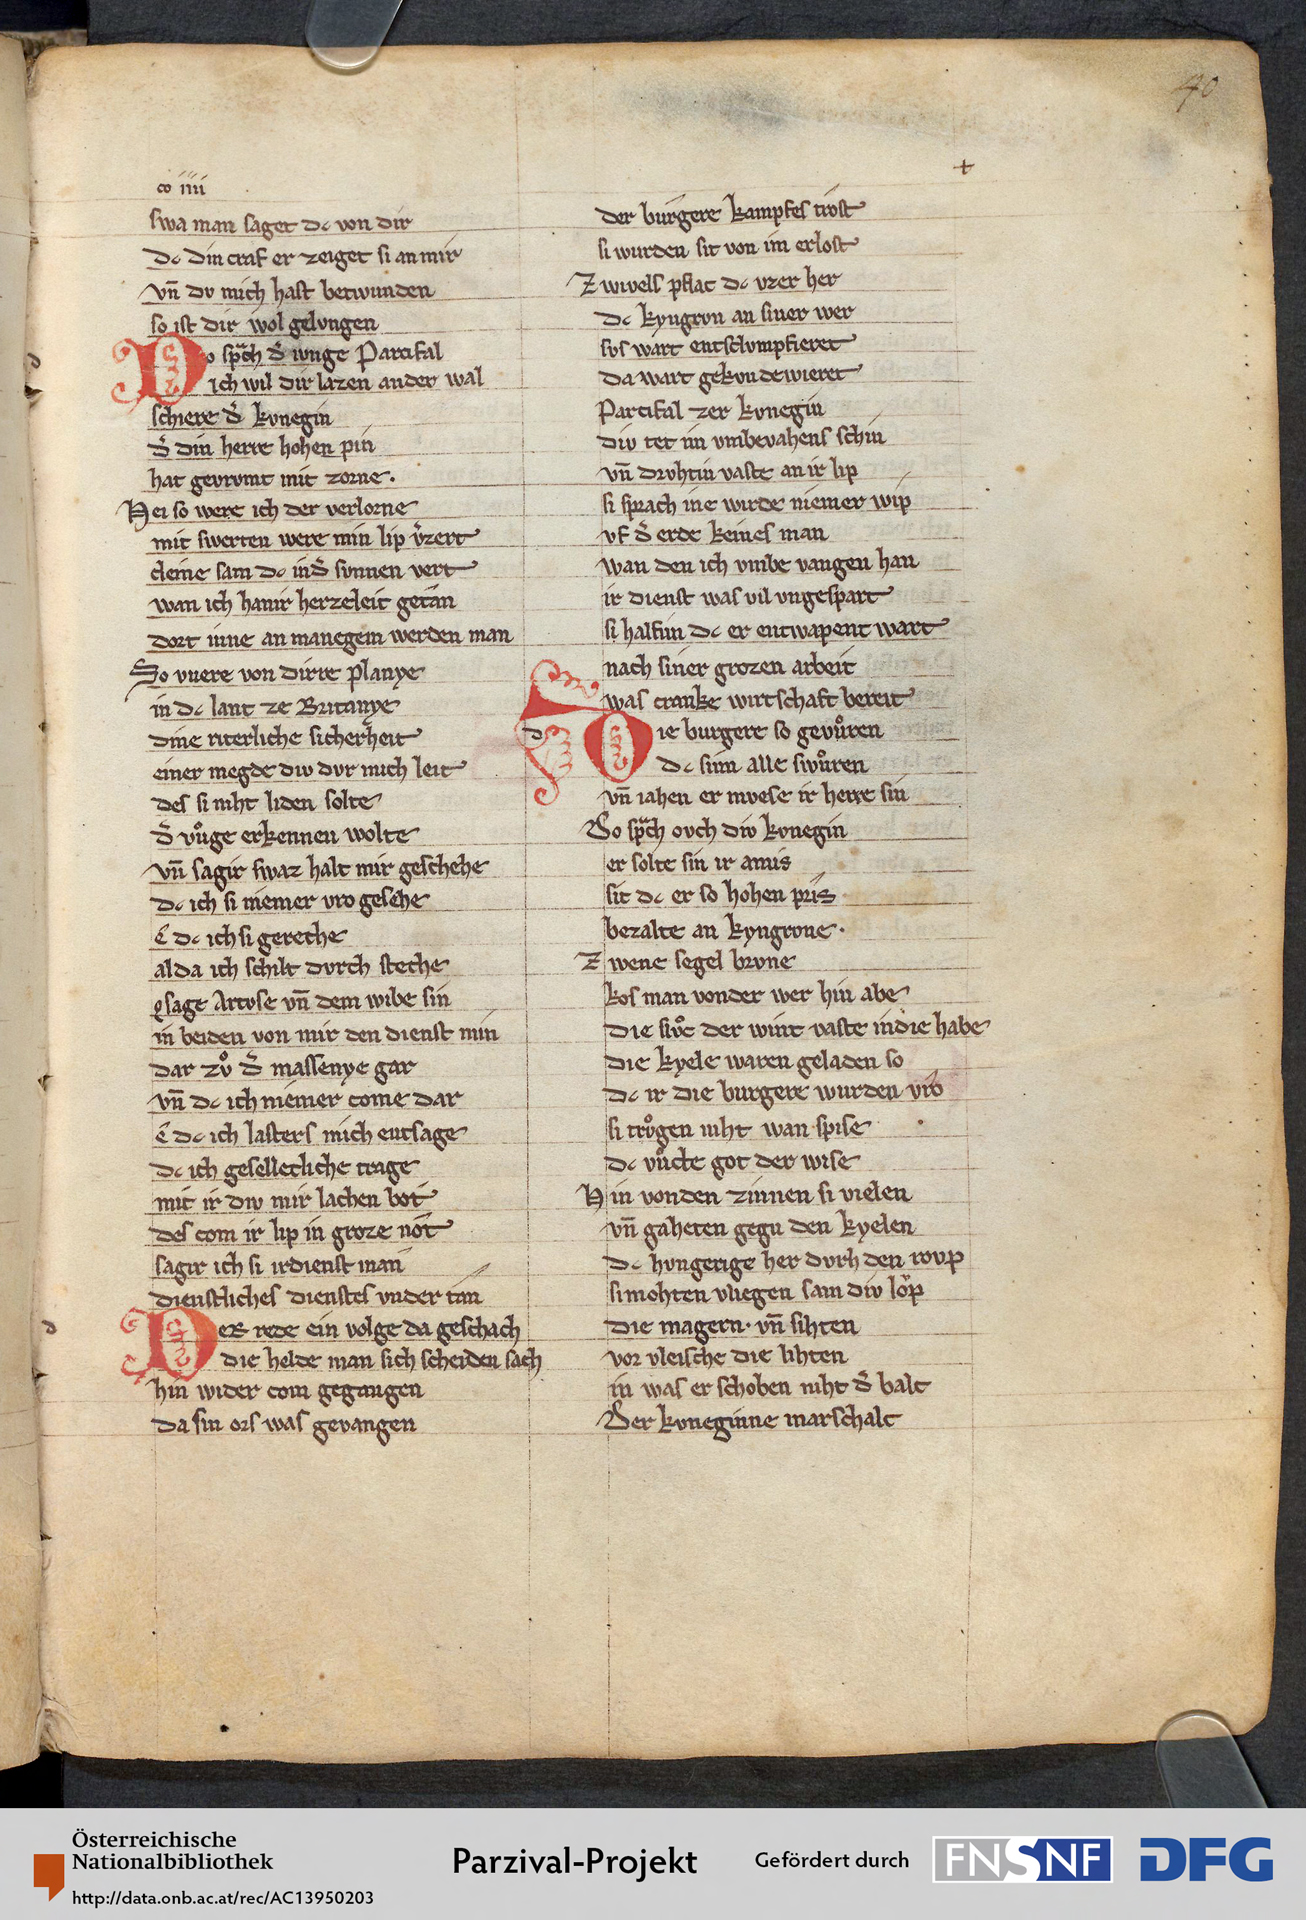 40
+
co iiii
swa man saget dc von dir
dc din craf er zeiget si an mir
vn̄ dv mich hast betwunden
so ist dir wol gelvngen
Do sp̃ch d̾ iunge Parcifal
ich wil dir lazen ander wal
schiere d̾ kvnegin
d̾ din herre hohen pin
hat gevrvmt mit zorne.
Nei so were ich der verlorne
mit swerten were min lip v̾zert
cleine sam dc ind̾ svnnen vert
wan ich hanir herzeleit getan
dort inne an manegem werden man
So vuere von dirre planye
in dc lant ze Britanye
dine riterliche sicherheit
einer megde div dvr mich leit
des si niht liden solte
d̾ vůge erkennen wolte
vn̄ sagir swaz halt mir geschehe
dc ich si niemer vro gesehe
E dc ich si gereche
alda ich schilt dvrch steche
sage Artvse vn̄ dem wibe sin
in beiden von mir den dienst min
dar zů d̾ massenye gar
vn̄ dc ich niemer come dar
E dc ich lasters mich entsage
dc ich gesellecliche trage
mit ir div mir lachen bot
des com ir lip in groze not
sagir ich si irdienst man
dienstliches dienstes vnder tan
Der rede ein volge da geschach
die helde man sich scheiden sach
hin wider com gegangen
da sin ors was gevangen
der burgere kampfes trost
si wurden sit von im erlost
Zwivels pflac dc vzer her
dc kyngron an siner wer
svs wart entschvmpfieret
da wart gekondewieret
Parcifal zer kvnegin
div tet im vmbevahens schin
vn̄ drvhtin vaste an ir lip
si sprach ine wirde niemer wip
vf d̾ erde keines man
wan den ich vmbe vangen han
ir dienst was vil vngespart
si halfim dc er entwapent wart
nach siner grozen arbeit
was cranke wirtschaft bereit
d
Die burgere so gevůren
dc sim alle swůren
vn̄ iahen er mvese ir herre sin
Do sp̃ch ovch div kvnegin
er solte sin ir amis
sit dc er so hohen pris
bezalte an kyngrone.
Zwene segel brvne
kos man vonder wer hin abe
die slůc der wint vaste indie habe
die kyele waren geladen so
dc ir die burgere wurden vro
si trůgen niht wan spise
dc vůcte got der wise
Hin vonden zinnen si vielen
vn̄ gaheten gegn den kyelen
dc hvngerige her dvrh den rovp
si mohten vliegen sam div lǒp
die magern. vn̄ sihten
vor vleische die lihten
in was er schoben niht d̾ balc
Der kvneginne marschalc
Österreichische
Nationalbibliothek
http://data.onb.ac.at/rec/AC13950203
Parzival-Projekt
Gefördert durch
FNSNF
DFG